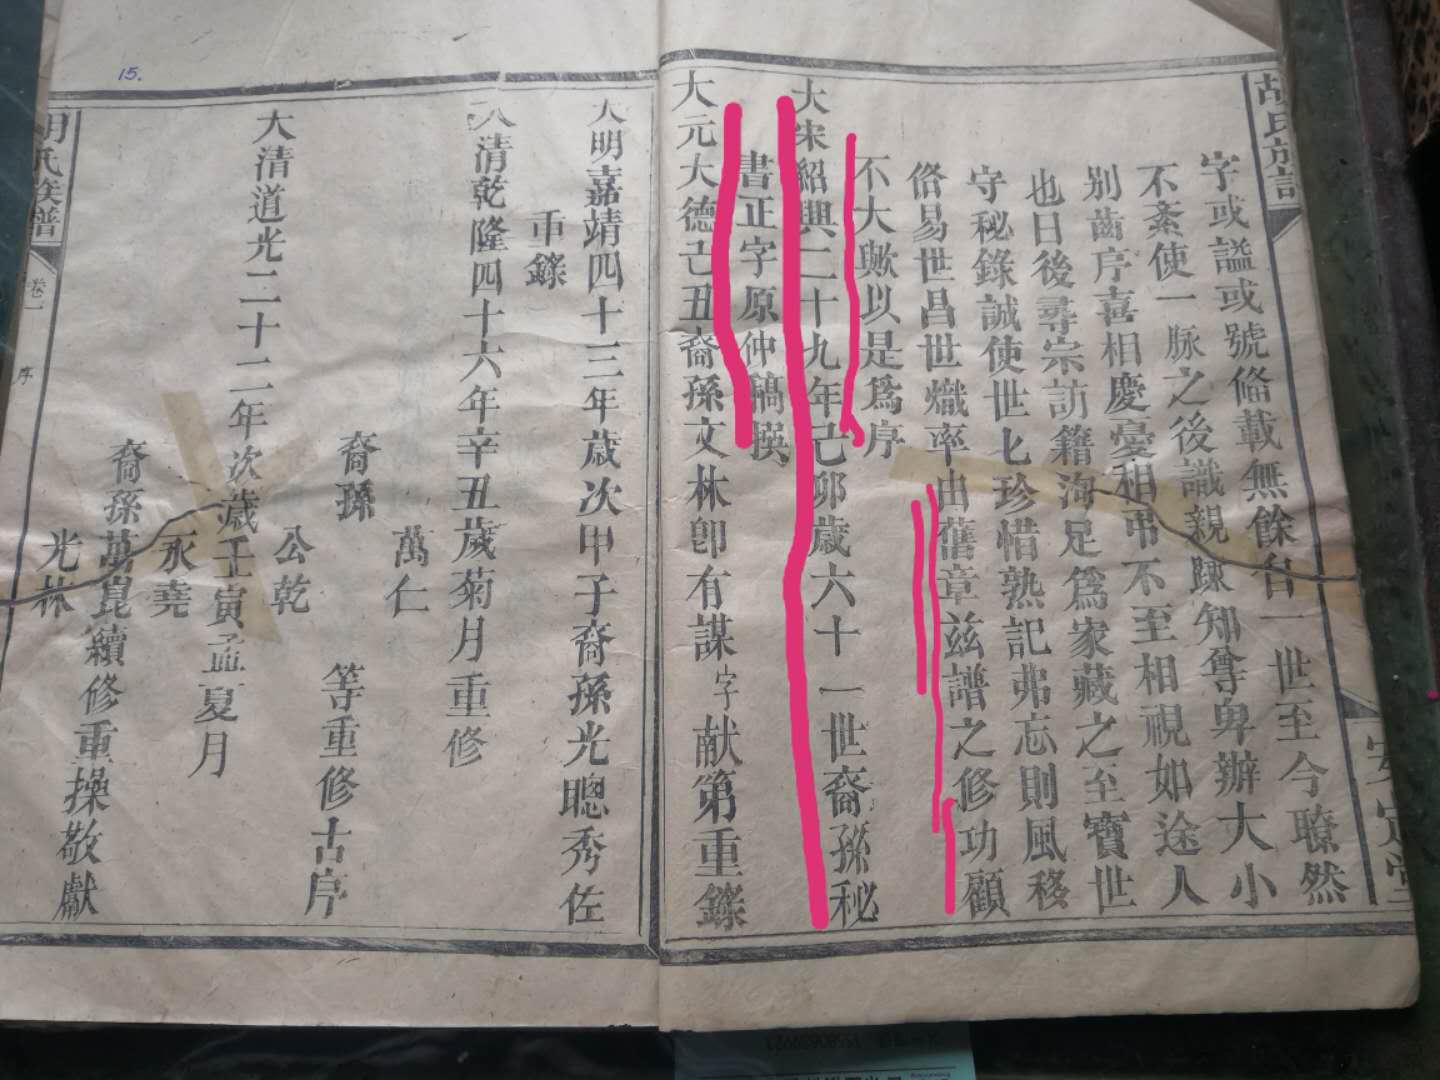 胡氏族譜
安定堂
字或謚或號俻載無餘自一世至今瞭然
不紊使一脉之後識親踈知尊卑辦大小
别齒序喜相慶憂相弔不至相視如途人
也日後尋宗訪籍洵足爲家藏之至寶世
守秘錄誠使世匕珍惜熟記弗忘則風移
俗易世昌世熾率由舊章茲譜之修功顧
不大歟以是爲序
大宋紹興二十九年己卯歲六十一世裔孫秘
書正字原仲稿撰
大元大德己丑裔孫文林卽有謀字献第重鎵
大明嘉靖四十三年歲次甲子裔孫光聰秀佐
重鎵
大清乾隆四十六年辛丑歲菊月重修
萬仁
裔孫
公乾
等重修古序
大清道光二十二年次歲壬寅孟夏月
永堯
裔孫萬崑續修重操敬獻
光林
胡氏族譜
卷一
序
15.